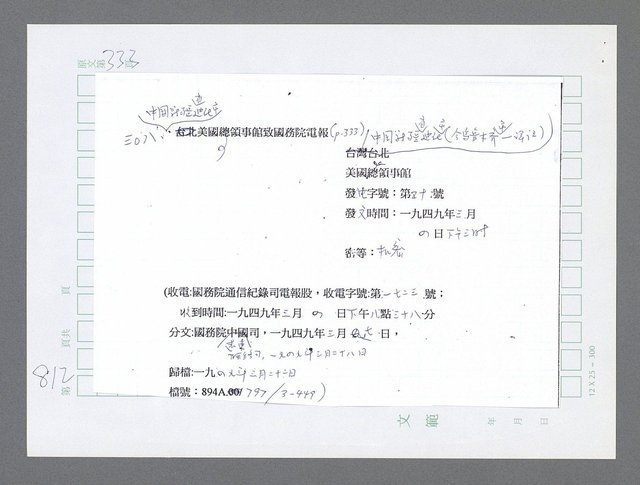 原文第333頁
三〇八、台北美國總領事館致國務院電報(p.333)
台灣台北
美國總領事館
發電字號：第五十號
發文時間：一九四九年三月
四日下午三時
密等：機密
(收電:國務院通信紀錄司電報股，收電字號:第一七二三號；
收到時間:一九四九年三月 四 日下午八點三十八分
分文:國務院中國司，一九四九年三月 日，
一九四九年三月二十八日
歸檔:一九四九年三月二十二日
檔號：894A.00/797/3-449)
812
第 頁共 頁
文範
年 月 日
12 X 25 = 300